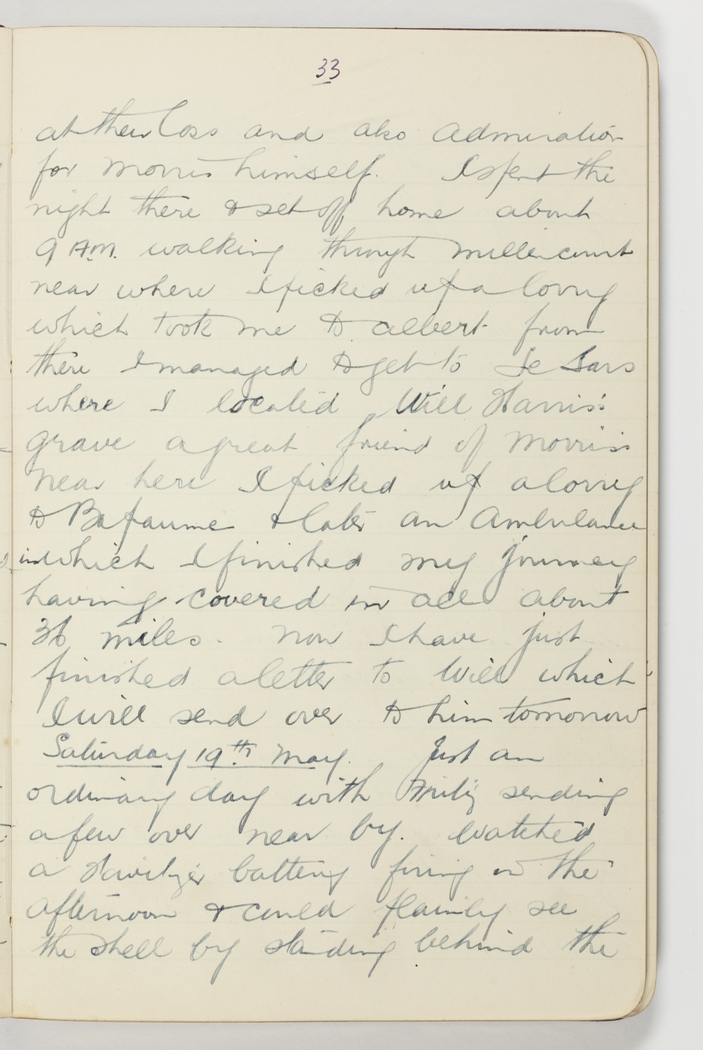 33
at their loss and also admiration
for Morris himself. I spent the
night there & set off home about
9 A.M. walking through Millencourt
near where I picked up a lorry
which took me to Albert from
there I managed to get to Le Sars
where I located Will Harris's
grave a great friend of Morris's
near here I picked up a lorry
to Bapaume & later an Ambulance
in which I finished my journey
having covered in all about
36 miles. Now I have just
finished a letter to Will which
I will send over to him tomorrow
Saturday 19th May. Just an
ordinary day with Fritz sending
a few over near by. Watched
a Howitzer battery firing in the
afternoon & could plainly see
the shell by standing behind the